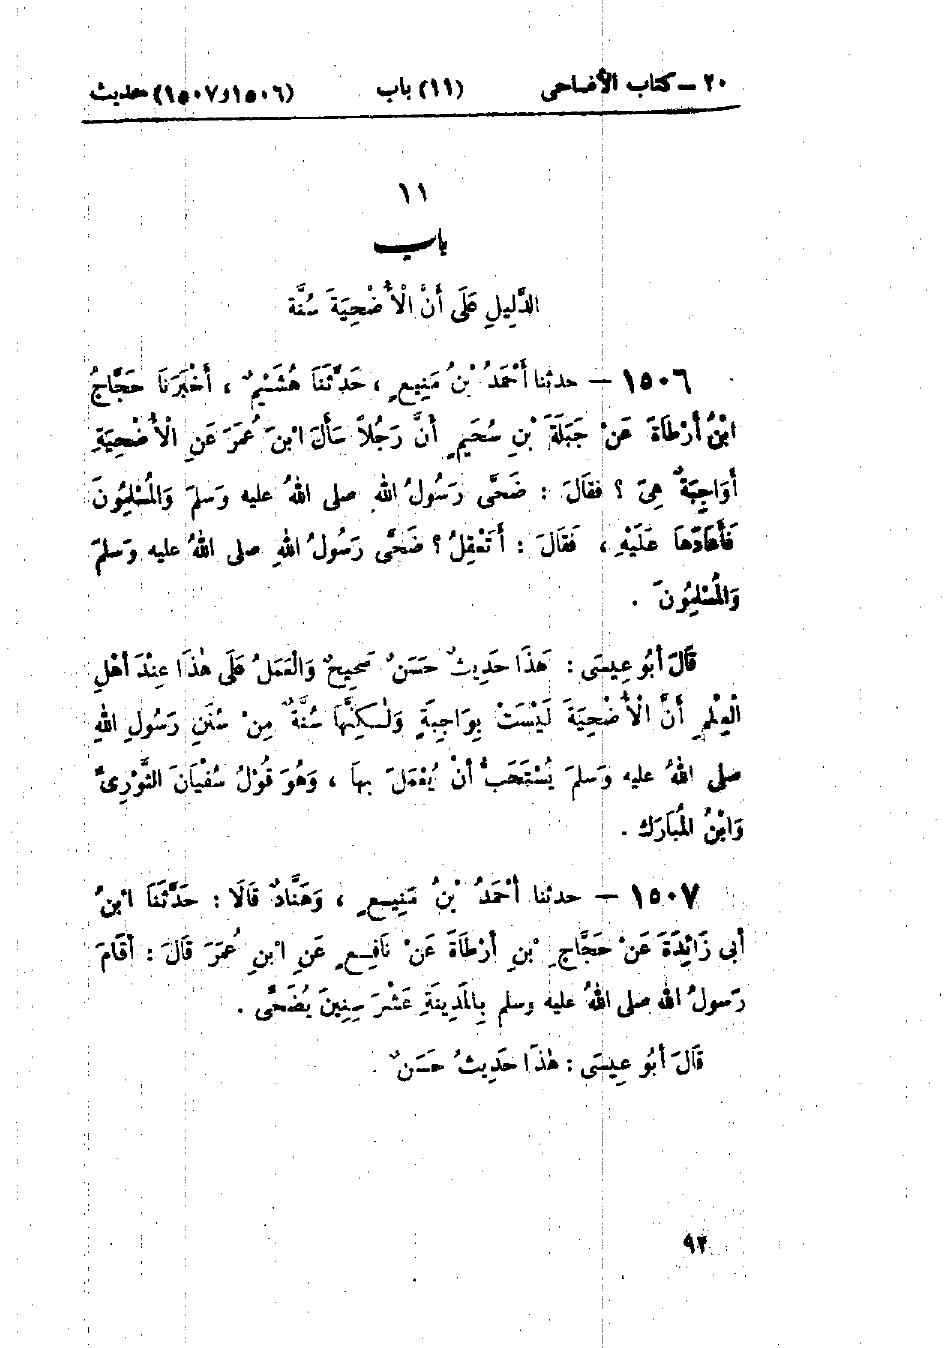 ٢٠ – كتاب الأضاحى (١١) باب (١٥٠٦ و١٥٠٧) حديث
١١
باب
الدَّلِيلِ عَلَى أَنَّ الْأُضْحِيَةَ سُنَّة
١٥٠٦ – حدثنا أَحْمَدُ بْنُ مَنِيعٍ ، حَدَّثَنَا هُشَيْمٌ ، أَخْبَرَنَا حَجَّاجُ
ابْنُ أَرْطَاةَ عَنْ جَبَلَةَ بْنِ سُحَيمٍ أَنَّ رَجُلاً سَأَلَ ابْنَ عُمَرَ عَنِ الْأُضْحِيَةِ
أَوَاجِبَةٌ هِىَ ؟ فقَالَ : ضَحَّى رَسُولُ اللهِ صلى اللهُ عليه وَسلمَ وَالمُسْلِمُونَ
فَأَعَادَهَا عَلَيْهِ ، فَقَالَ : أَتَعْقِلُ ؟ ضَحَّى رَسُولُ اللهِ صلى اللهُ عليه وَسلمَ
وَالمُسْلِمُونَ .
قَالَ أَبُو عِيسَى : هَذَا حَدِيثٌ حَسَنٌ صَحِيحٌ وَالْعَمَلُ عَلَى هٰذَا عِنْدَ أَهْلِ
الْعِلْمِ أَنَّ الْأُضْحِيَةَ لَيْسَتْ بِوَاجِبَةٍ وَلٰكِنَّهَا سُنَّةٌ مِنْ سُنَنِ رَسُولِ اللهِ
صلى اللهُ عليه وَسلمَ يُسْتَحَبُّ أَنْ يُعْمَلَ بهَا ، وَهُوَ قَوْلُ سُفْيَانَ الثَّوْرِىِّ
وَابْنُ المُبَارَك .
١٥٠٧ – حدثنا أَحْمَدُ بْنُ مَنِيعٍ ، وَهَنَّادٌ قَالَا : حَدَّثَنَا ابْنُ
أَبى زَائِدَةَ عَنْ حَجَّاجِ بْنِ أَرْطَاةَ عَنْ نَافِعٍ عَنِ ابْنِ عُمَرَ قَالَ : أَقَامَ
رَسولُ اللهِ صلى اللهُ عليه وسلم بِالمَدِينَةِ عَشْرَ سِنِينَ يُضَحِّى .
قَالَ أَبُو عِيسَى : هٰذَا حَدِيثٌ حَسَنٌ
٩٢